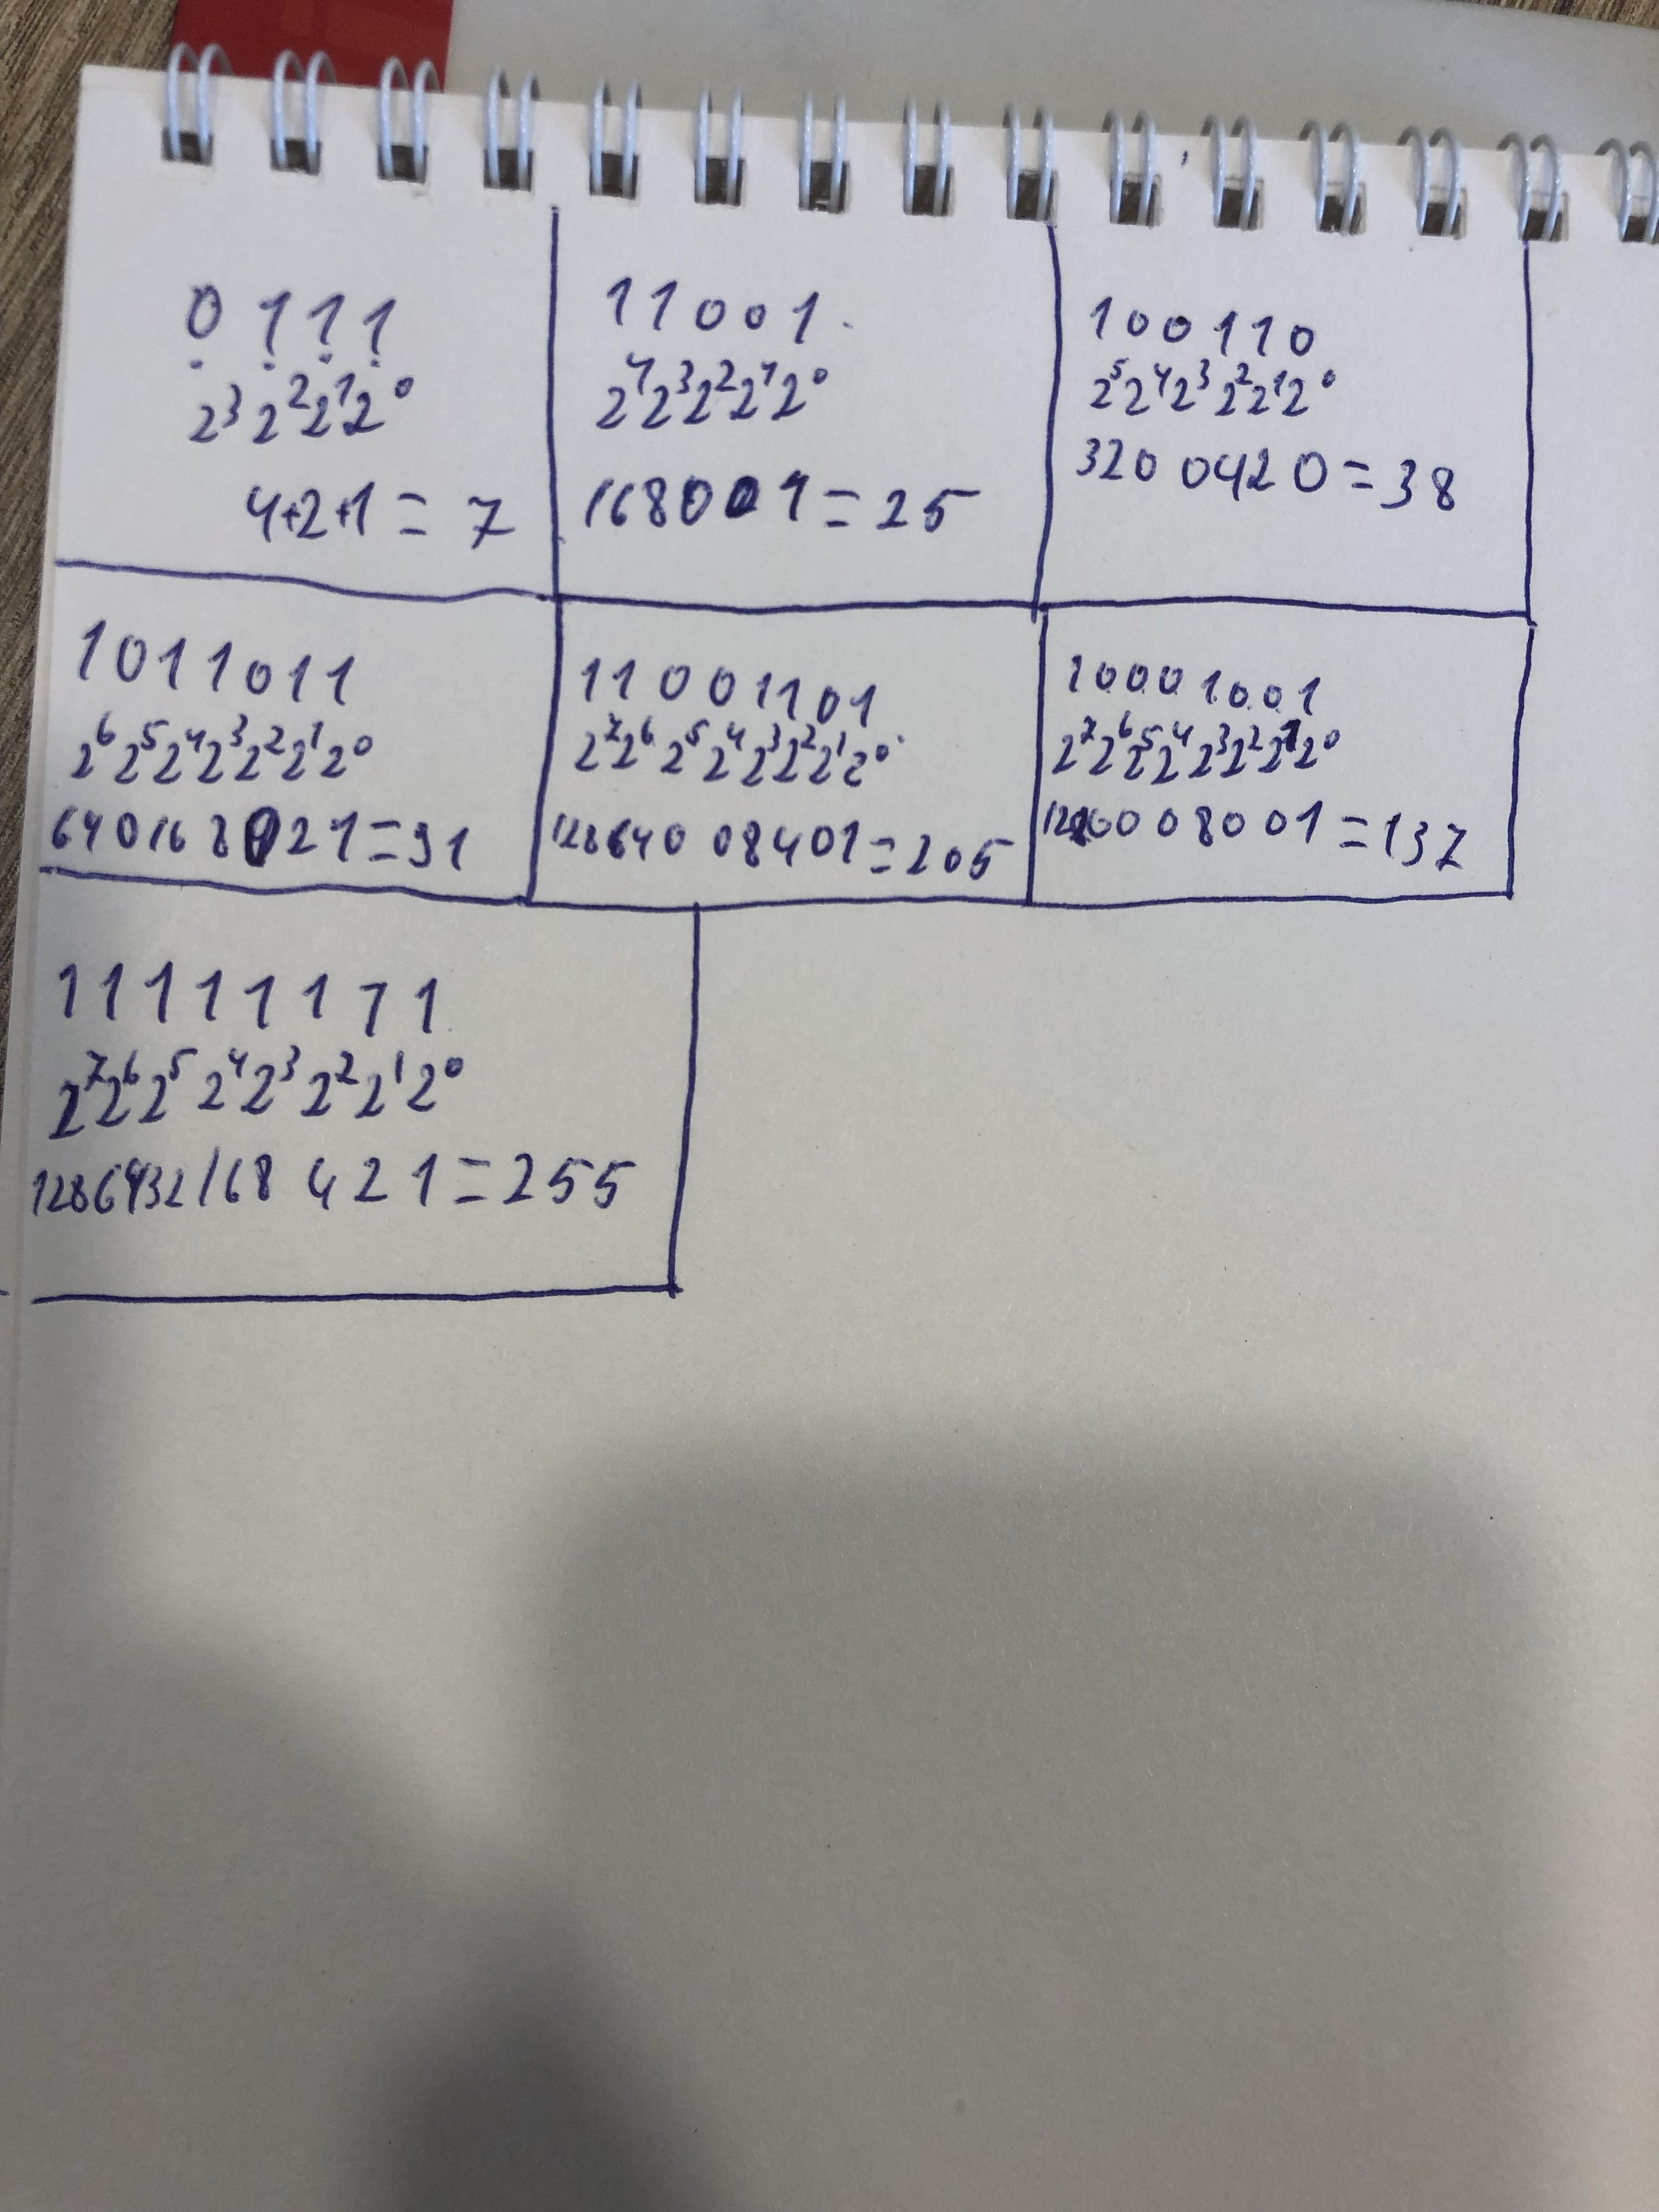 0 1 1 1
2³ 2² 2¹ 2⁰
4+2+1 = 7
1 1 0 0 1
2⁴ 2³ 2² 2¹ 2⁰
16 8 0 0 1 = 25
1 0 0 1 1 0
2⁵ 2⁴ 2³ 2² 2¹ 2⁰
32 0 0 4 2 0 = 38
1 0 1 1 0 1 1
2⁶ 2⁵ 2⁴ 2³ 2² 2¹ 2⁰
64 0 16 8 0 2 1 = 91
1 1 0 0 1 1 0 1
2⁷ 2⁶ 2⁵ 2⁴ 2³ 2² 2¹ 2⁰
128 64 0 0 8 4 0 1 = 205
1 0 0 0 1 0 0 1
2⁷ 2⁶ 2⁵ 2⁴ 2³ 2² 2¹ 2⁰
128 0 0 0 8 0 0 1 = 137
1 1 1 1 1 1 1 1
2⁷ 2⁶ 2⁵ 2⁴ 2³ 2² 2¹ 2⁰
128 64 32 16 8 4 2 1 = 255